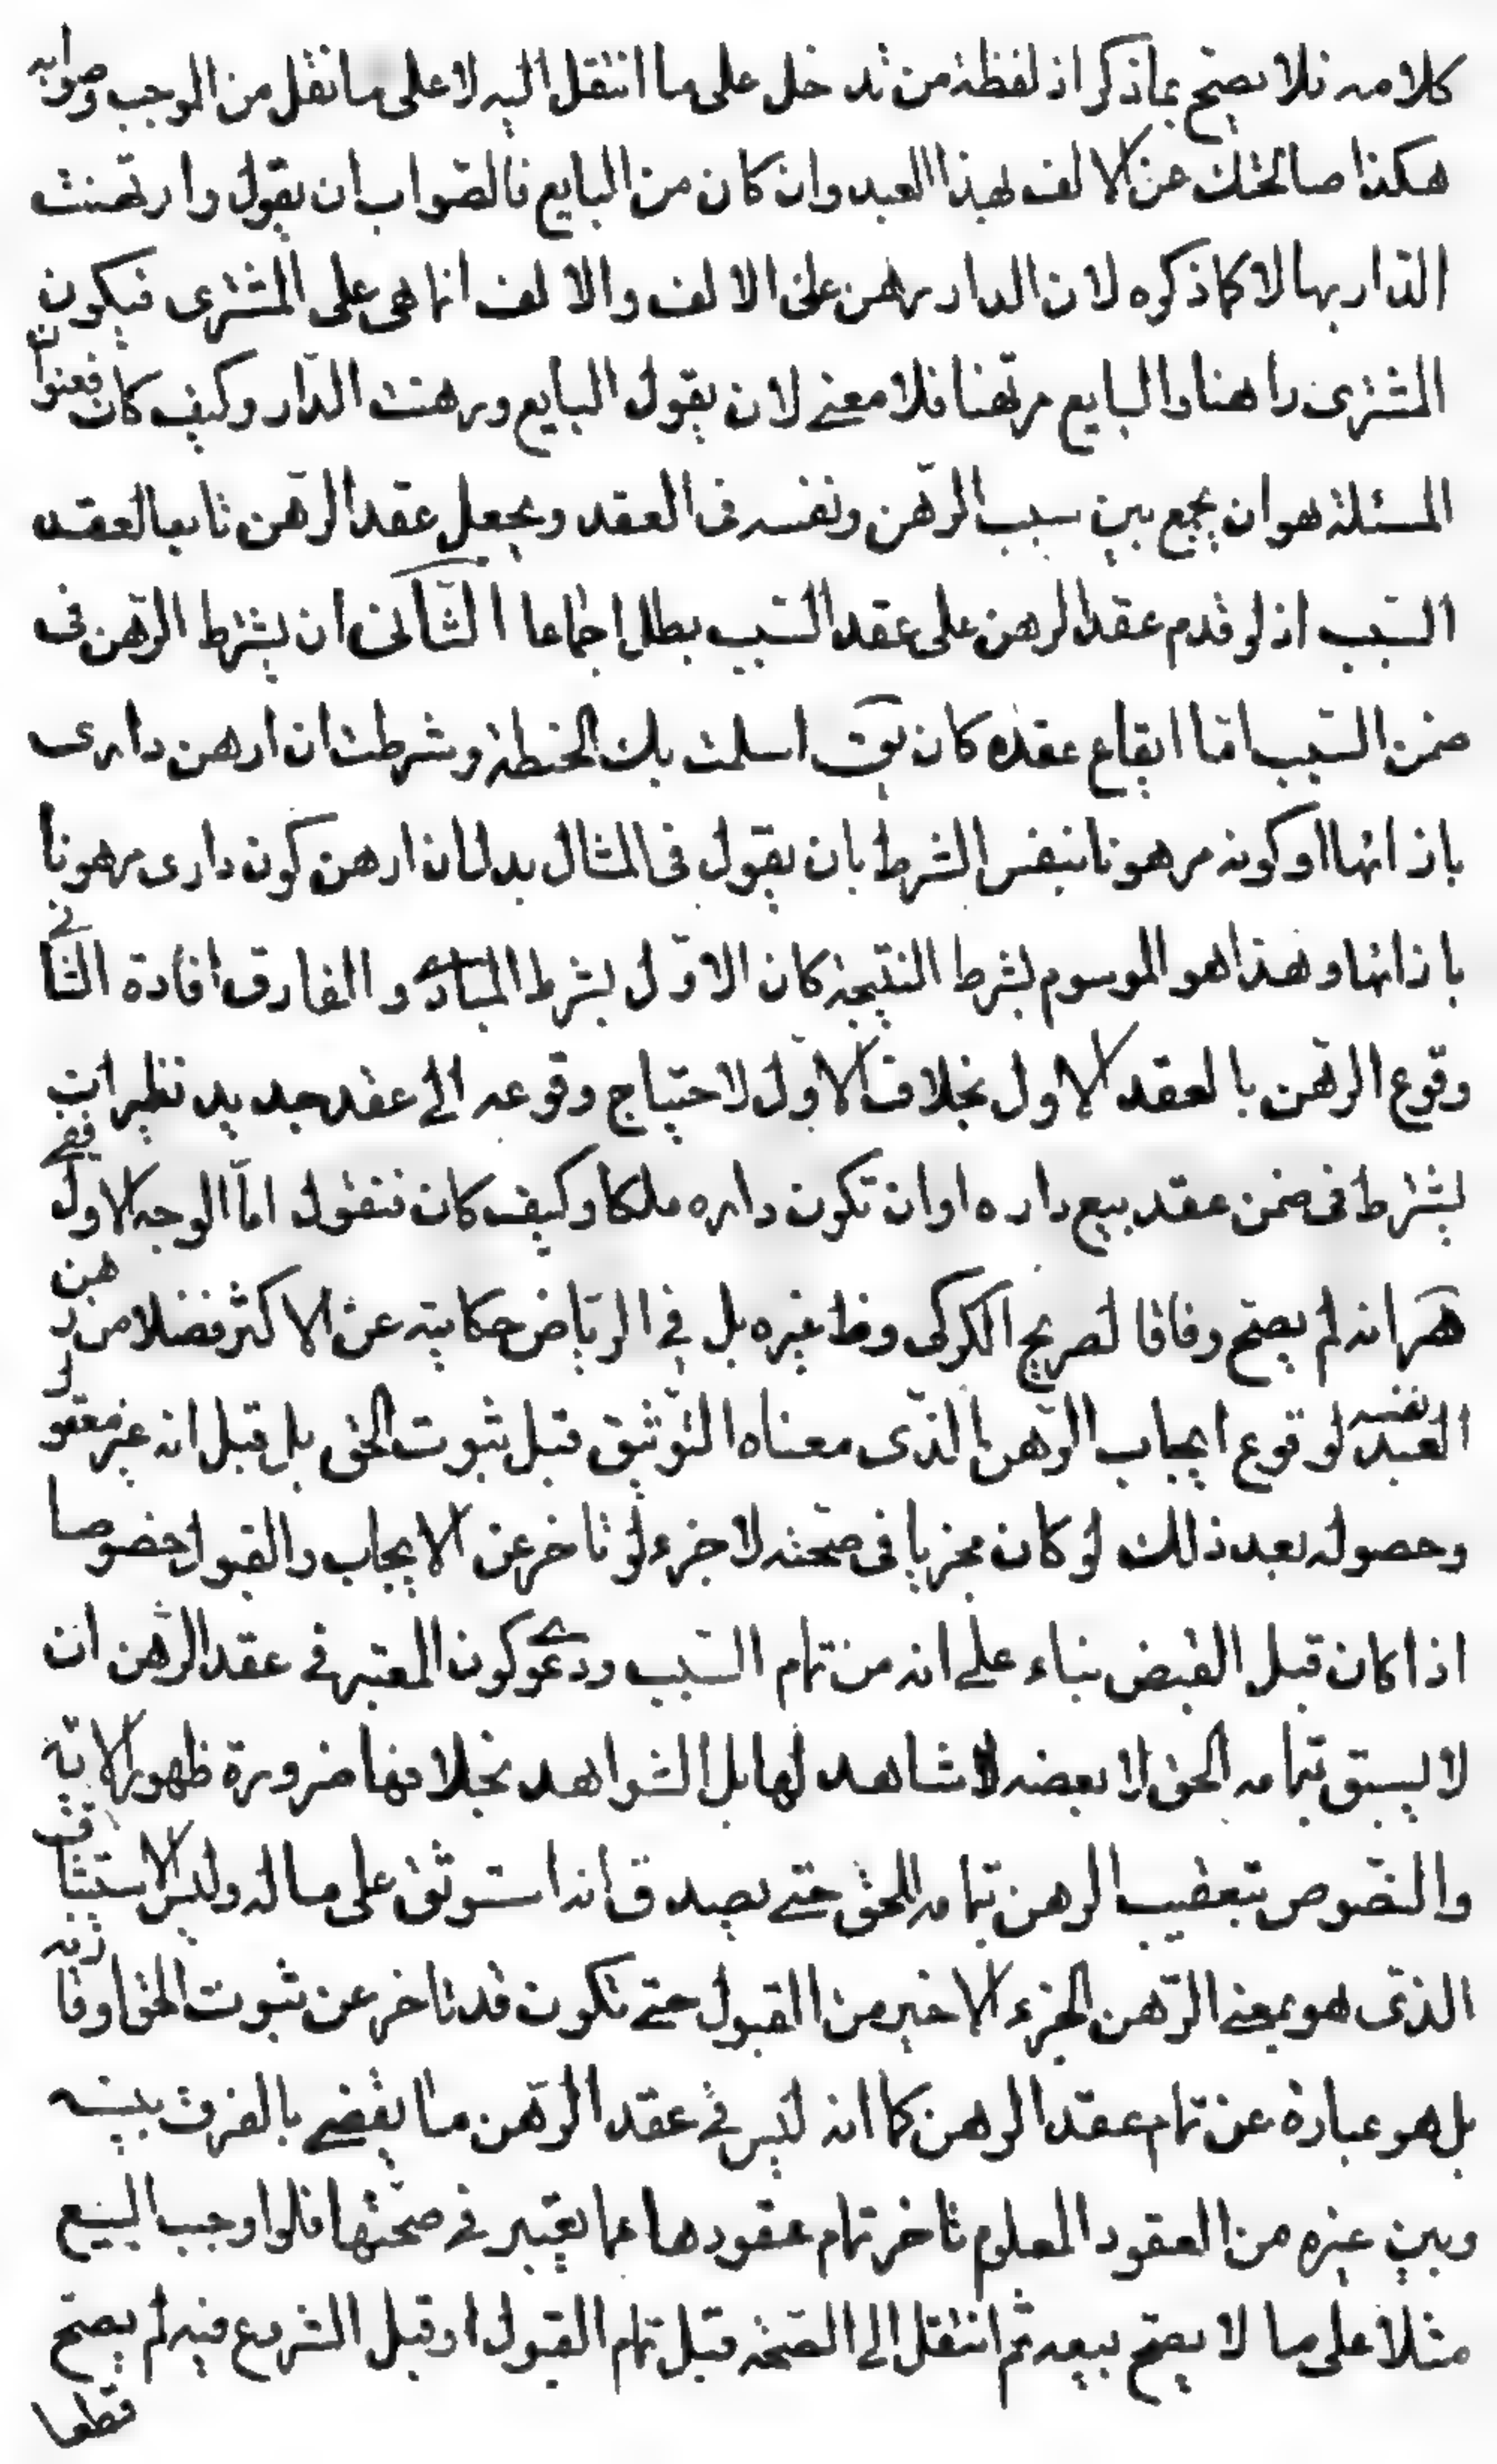 كلامه فلا يصح بما ذكر اذ لفظة من تدخل على ما انتقل اليه لا على ما نقل من الموجب وصوابه
هكذا صالحتك عن الالف بهذا العبد وان كان من البايع فالصواب ان يقول وارتهنت
الدار بها لا كما ذكره لان الدار رهن على الالف والالف انما هى على المشترى فيكون
المشترى راهنا والبايع مرتهنا فلا معنى لان يقول البايع ورهنت الدار وكيف كان فعنوان
المسئلة هو ان يجمع بين سبب الرهن ونفسه فى العقد ويجعل عقد الرهن تابعا لعقد
السبب اذ لو قدم عقد الرهن على عقد السبب بطل اجماعا الثانى ان يشترط الرهن فى
ضمن السبب اما ايقاع عقده كان يق اسلمت بك الحنطة وشرطت ان ارهن دارى
بازائها او كونه مرهونا بنفس الشرط بان يقول فى المثال بدل ان ارهن كون دارى مرهونا
بازائها وهذا هو الموسوم بشرط النتيجة كان الاول بشرط المبادى والفارق افادة الثانى
وقوع الرهن بالعقد الاول بخلاف الاول لاحتياج وقوعه الى عقد جديد نظير ان
يشترط فى ضمن عقد بيع داره او ان تكون داره ملكا وكيف كان فنقول اما الوجه الاول ففى
هر انه لم يصح وفاقا لصريح الكركى وظ غيره بل فى الرياض حكايته عن الاكثر فضلا من رهن
العبد نفسه لوقوع ايجاب الرهن الذى معناه التوثيق قبل ثبوت الحق بل قيل انه غير معقول
وحصوله بعد ذلك لو كان مجزيا فى صحته لاجزء لو تاخر عن الايجاب والقبول خصوصا
اذا كان قبل القبض بناء على انه من تمام السبب ودعوى كون المعتبر فى عقد الرهن ان
لا يسبق تمامه الحق لا بعضه لا شاهد لها بل الشواهد بخلافها ضرورة ظهور الاية
والنصوص بتعقيب الرهن تمامه للحق حتى يصدق انه استوثق على ماله وليس الاستيثاق
الذى هو بمعنى الرهن الجزء الاخير من القبول حتى تكون قد تاخر عن ثبوت الحق او قارنه
بل هو عبارة عن تمام عقد الرهن كما انه ليس فى عقد الرهن ما يقضى بالفرق بينه
وبين غيره من العقود المعلوم تاخر تمام عقودها عما يعتبر فى صحتها فلو اوجب البيع
مثلا على ما لا يصح بيعه ثم انتقل الى الصحة قبل تمام القبول او قبل الشروع فيه لم يصح
قطعا